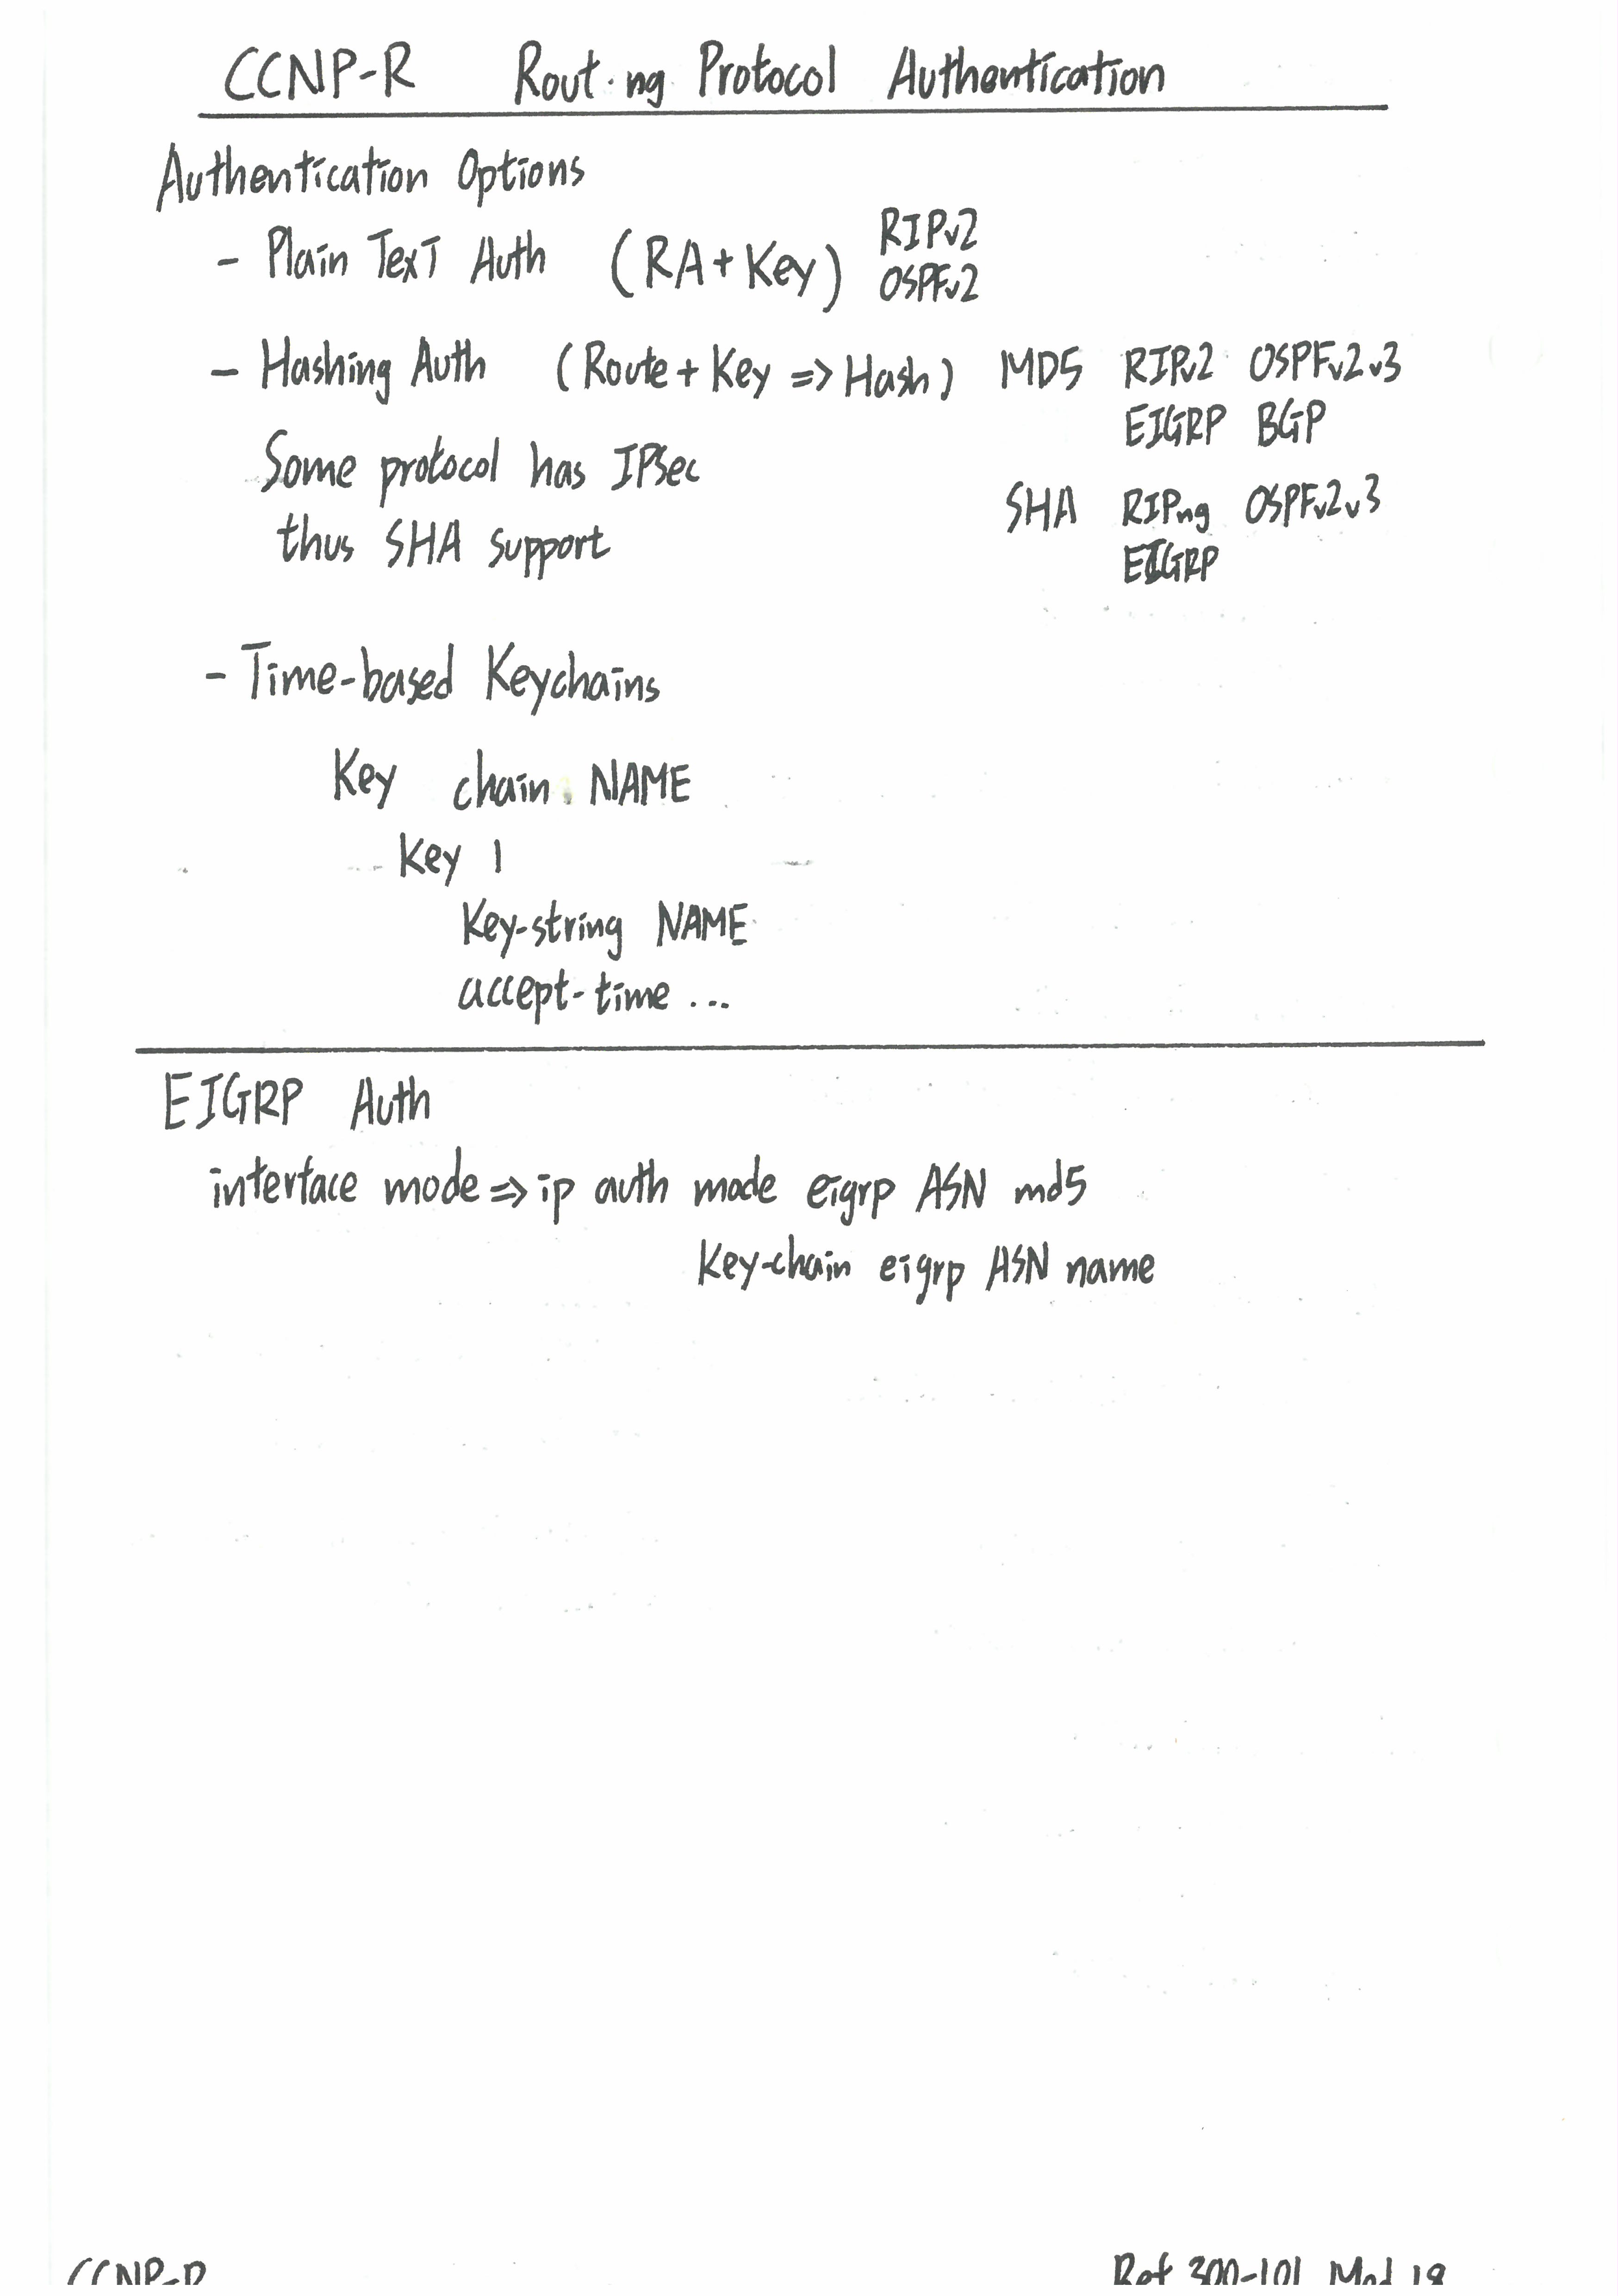 CCNP-R Routing Protocol Authentication
Authentication Options
- Plain Text Auth (RA+Key) RIPv2
OSPFv2
- Hashing Auth (Route+Key => Hash) MD5 RIPv2 OSPFv2v3
EIGRP BGP
Some protocol has IPSec
thus SHA support
SHA RIPng OSPFv2v3
EIGRP
- Time-based Keychains
Key chain NAME
Key 1
Key-string NAME
accept-time ...
EIGRP Auth
interface mode => ip auth mode eigrp ASN md5
Key-chain eigrp ASN name
CCNP-R
Ref 300-101 Mod 18